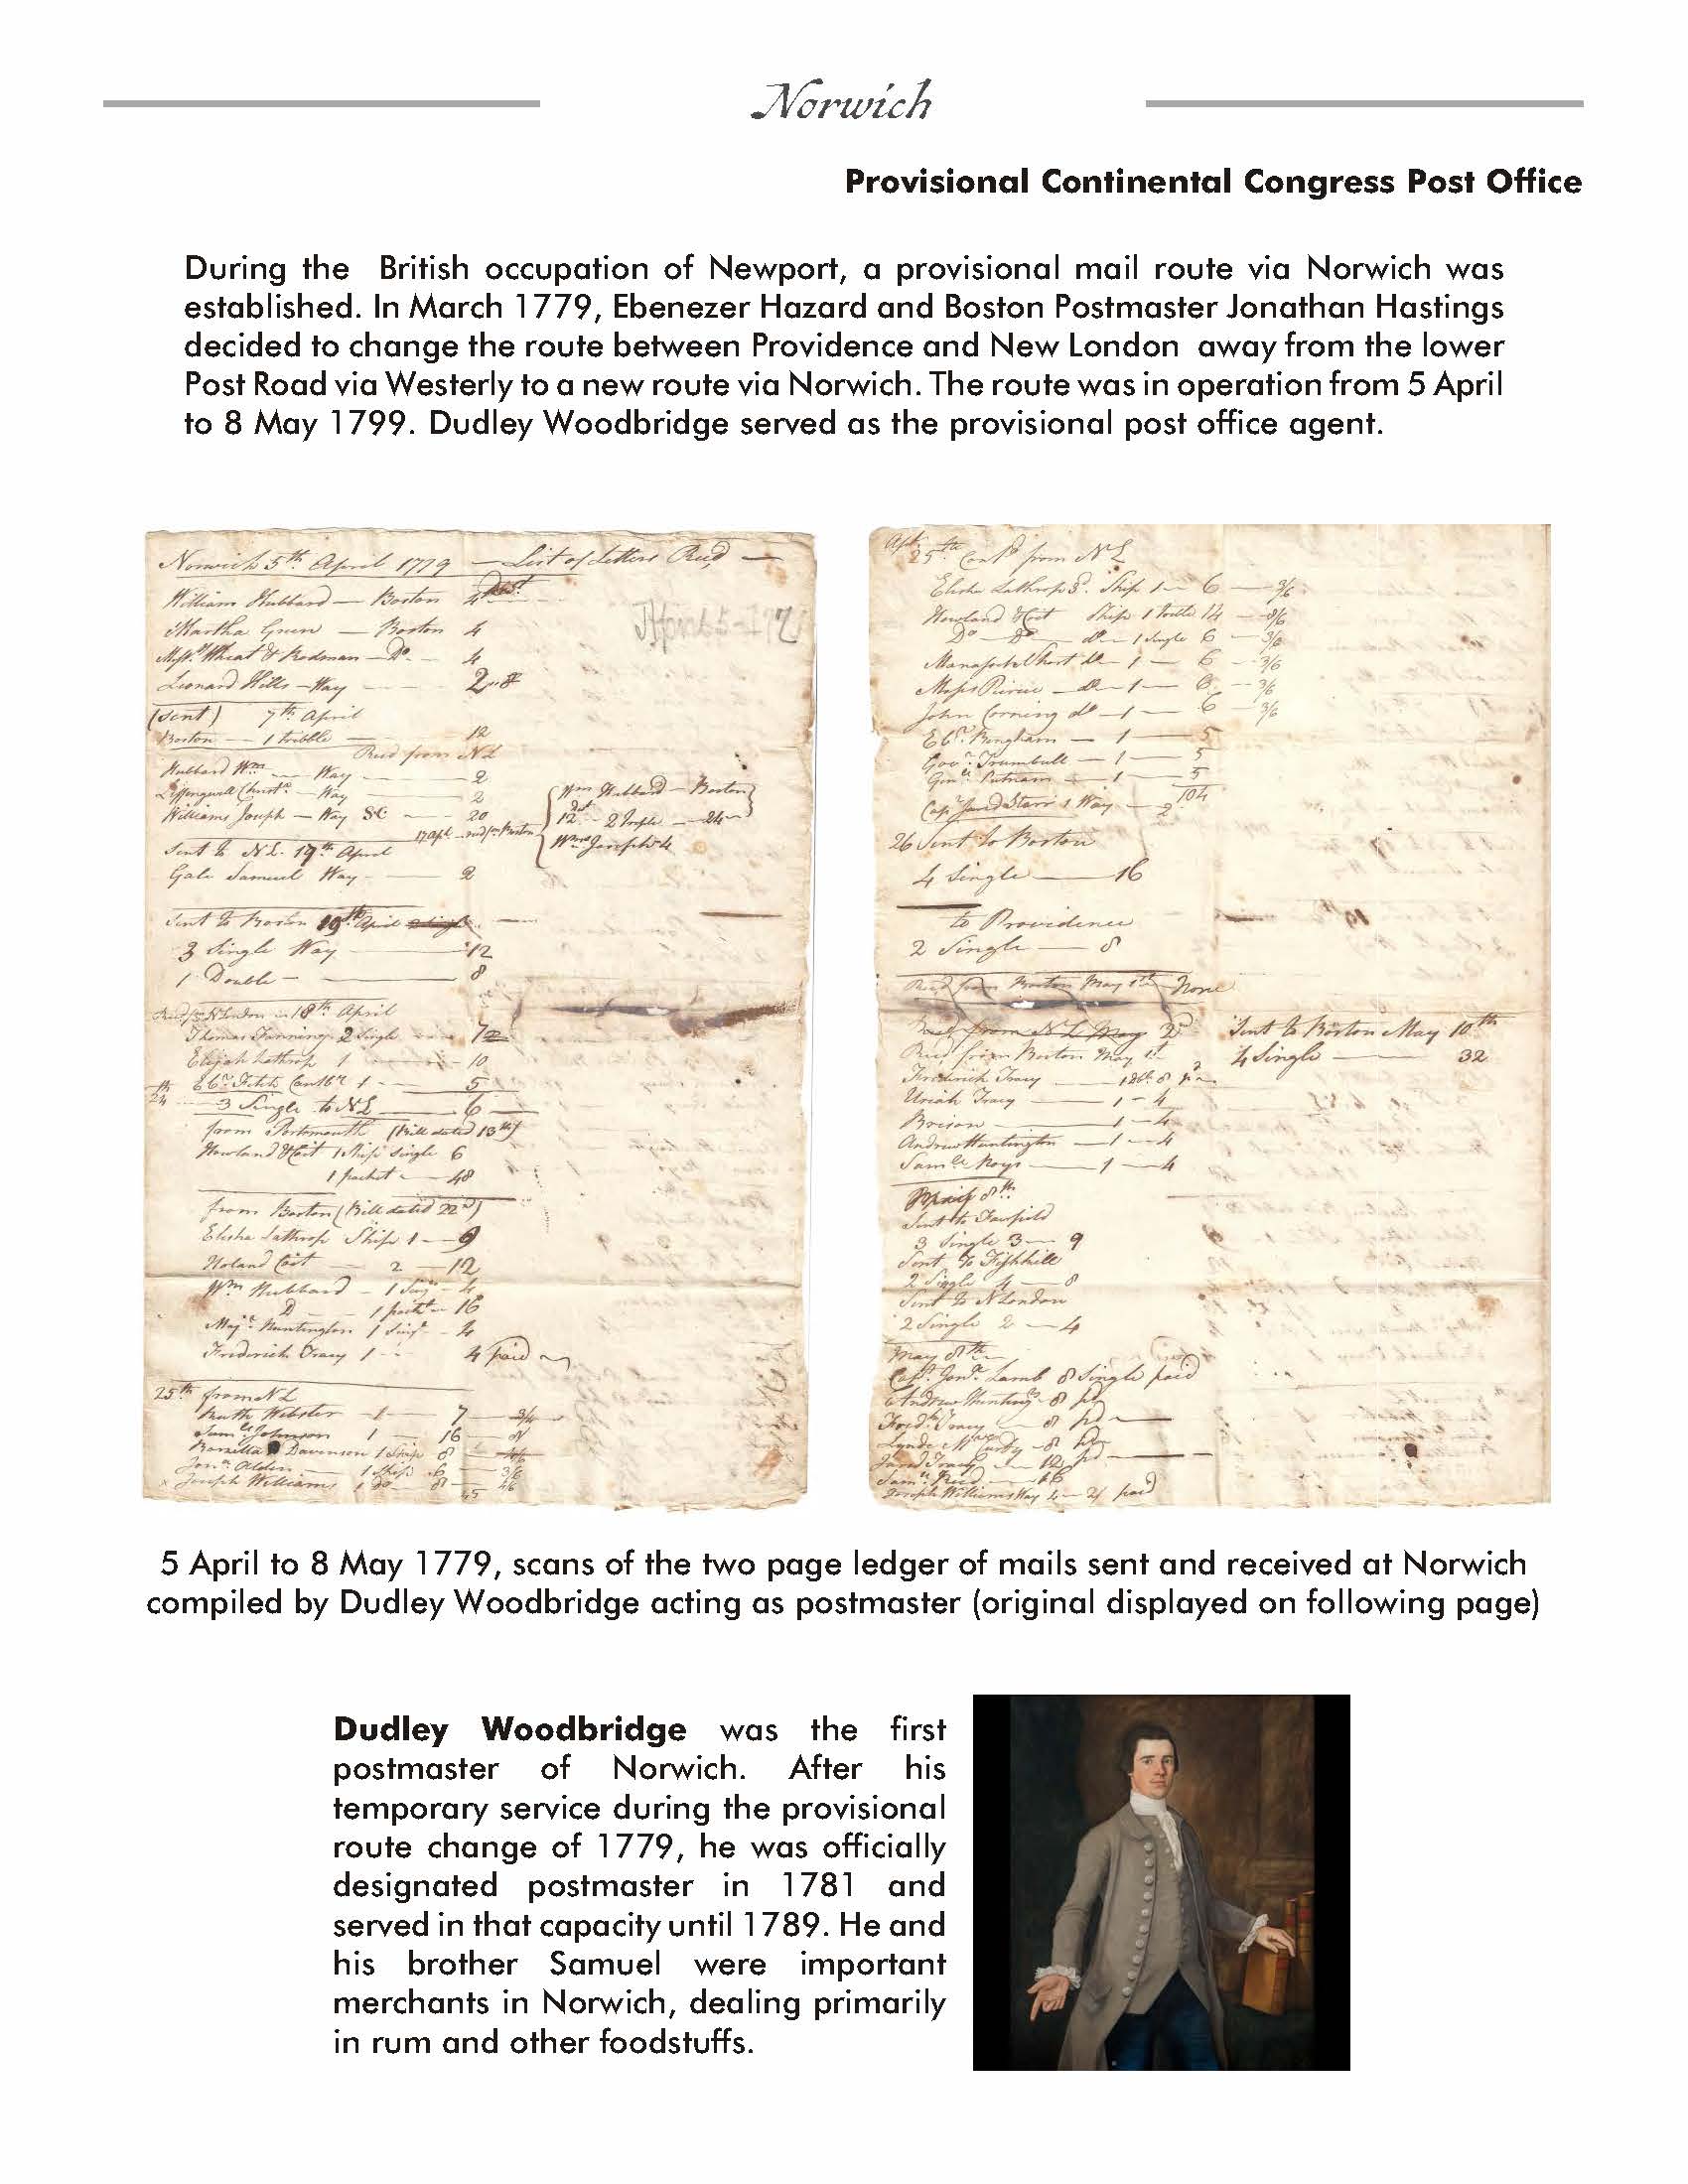 Norwich
Provisional Continental Congress Post Office
During the British occupation of Newport, a provisional mail route via Norwich was
established. In March 1779, Ebenezer Hazard and Boston Postmaster Jonathan Hastings
decided to change the route between Providence and New London away from the lower
Post Road via Westerly to a new route via Norwich. The route was in operation from 5 April
to 8 May 1799. Dudley Woodbridge served as the provisional post office agent.
Norwich 5th April 1779 — List of Letters Recd, —
William Hubbard — Boston 4
Martha Green — Boston 4
Wheat & Rodman — Do. — 4
Leonard Hills — Way 2
(Sent) 7th April
Boston — 1 tribble 12
Recd from NL
Hubbard Wm — Way — 2
Way — 2
Williams Joseph — Way — 20
Wm Hubbard — Boston
12 — 2 — 24
Joseph 4
Sent to NL. 19th April
Gale Samuel Way — 2
Sent to Boston 19th April
3 Single Way — 12
1 Double — 8
18th April
Thomas Fanning 2 Single
Elijah Lathrop 1 — 10
1 — 5
24th 3 Single to NL — 6
from Portsmouth (Bill dated 13th)
Howland & Coit 1 Ship single 6
1 packet — 48
from Boston (Bill dated 22d)
Elisha Lathrop Ship 1 — 6
Holand Coit — 2 — 12
Wm Hubbard — 1 Sing — 4
D — 1 — 16
Majr Huntington 1 Sing — 4
Frederick Tracy 1 — 4 paid
25th from NL
Ruth Webster — 1 — 7
Saml Johnson 1 — 16
Davenson 1 Ship 8
Jona. Alden 1 Ship 6 — 3/6
Joseph Williams 1 Do — 8
45
25th from NL
Elisha Lathrop Ship 1 — 6 — 3/6
Howland & Coit Ship 1 14
Do — Do — do — 1 Single 6 — 3/6
1 — 6 — 3/6
do — 1 — 6 — 3/6
John Corning do — 1 — 6 — 3/6
Bingham — 1 — 5
Govr. Trumbull — 1 — 5
Genl Putnam — 1 — 5
104
Capt Jared Starr 1 Way — 2
26 Sent to Boston
4 Single — 16
to Providence
2 Single — 8
Recd from Boston May 1st None
Recd from NL May 2d
Sent to Boston May 10th
4 Single — 32
Recd from Boston May 1st
Frederick Tracy
Uriah Tracy — 1 — 4
1 — 4
Andrew Huntington — 1 — 4
Saml — 1 — 4
May 8th
Sent to Fairfield
3 Single 3 — 9
Sent to Fishkill
2 Single 4 — 8
Sent to N London
2 Single 2 — 4
May 8th
Capt. Jona. Lamb 8 Single paid
Andrew 8 pd
Tracy — 8 pd
8 pd
Tracy — 12 pd
Joseph Williams Way 2 paid
5 April to 8 May 1779, scans of the two page ledger of mails sent and received at Norwich
compiled by Dudley Woodbridge acting as postmaster (original displayed on following page)
Dudley Woodbridge was the first
postmaster of Norwich. After his
temporary service during the provisional
route change of 1779, he was officially
designated postmaster in 1781 and
served in that capacity until 1789. He and
his brother Samuel were important
merchants in Norwich, dealing primarily
in rum and other foodstuffs.